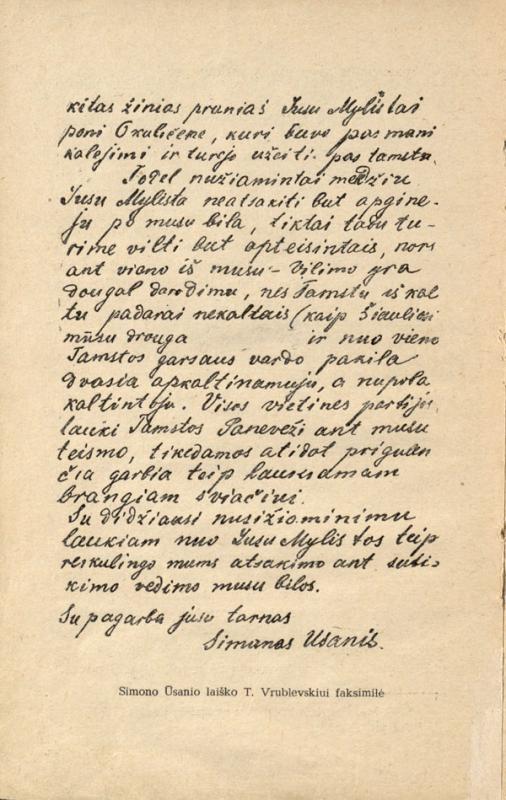 kitas žinias praniaš Jusu Mylistai
poni Okuličene, kuri buvo pas mani
kalejimi ir turejo užeiti pas tamstu.
Todel nužiamintai medžiu
Jusu Mylista neatsakiti but apgine-
ju po musu bila, tiktai tadu tu-
rime vilti but apteisintais, nors
ant viano iš musu - Vilimo yra
dougal darodimu, nes Tamstu iš kal
tu padarai nekaltais (kaip Šiauliesi
mūsu drouga ir nuo vieno
Tamstos garsaus vardo pakila
dvasia apkaltinamuju, a nupola
kaltintoju. Visos vietines partijos
lauki Tamstos Paneveži ant musu
teismo, tikedamos atidot prigulen
čia garbia teip laukiamam
brangiam sviačiui.
Su didžiausi nusižiominimu
laukiam nuo Jusu Mylistos teip
reikulingo mums atsakimo ant suti-
kimo vedimo musu bilos.
Su pagarba jusu tarnas
Simanas Usanis.
Simono Ūsanio laiško T. Vrublevskiui faksimilė